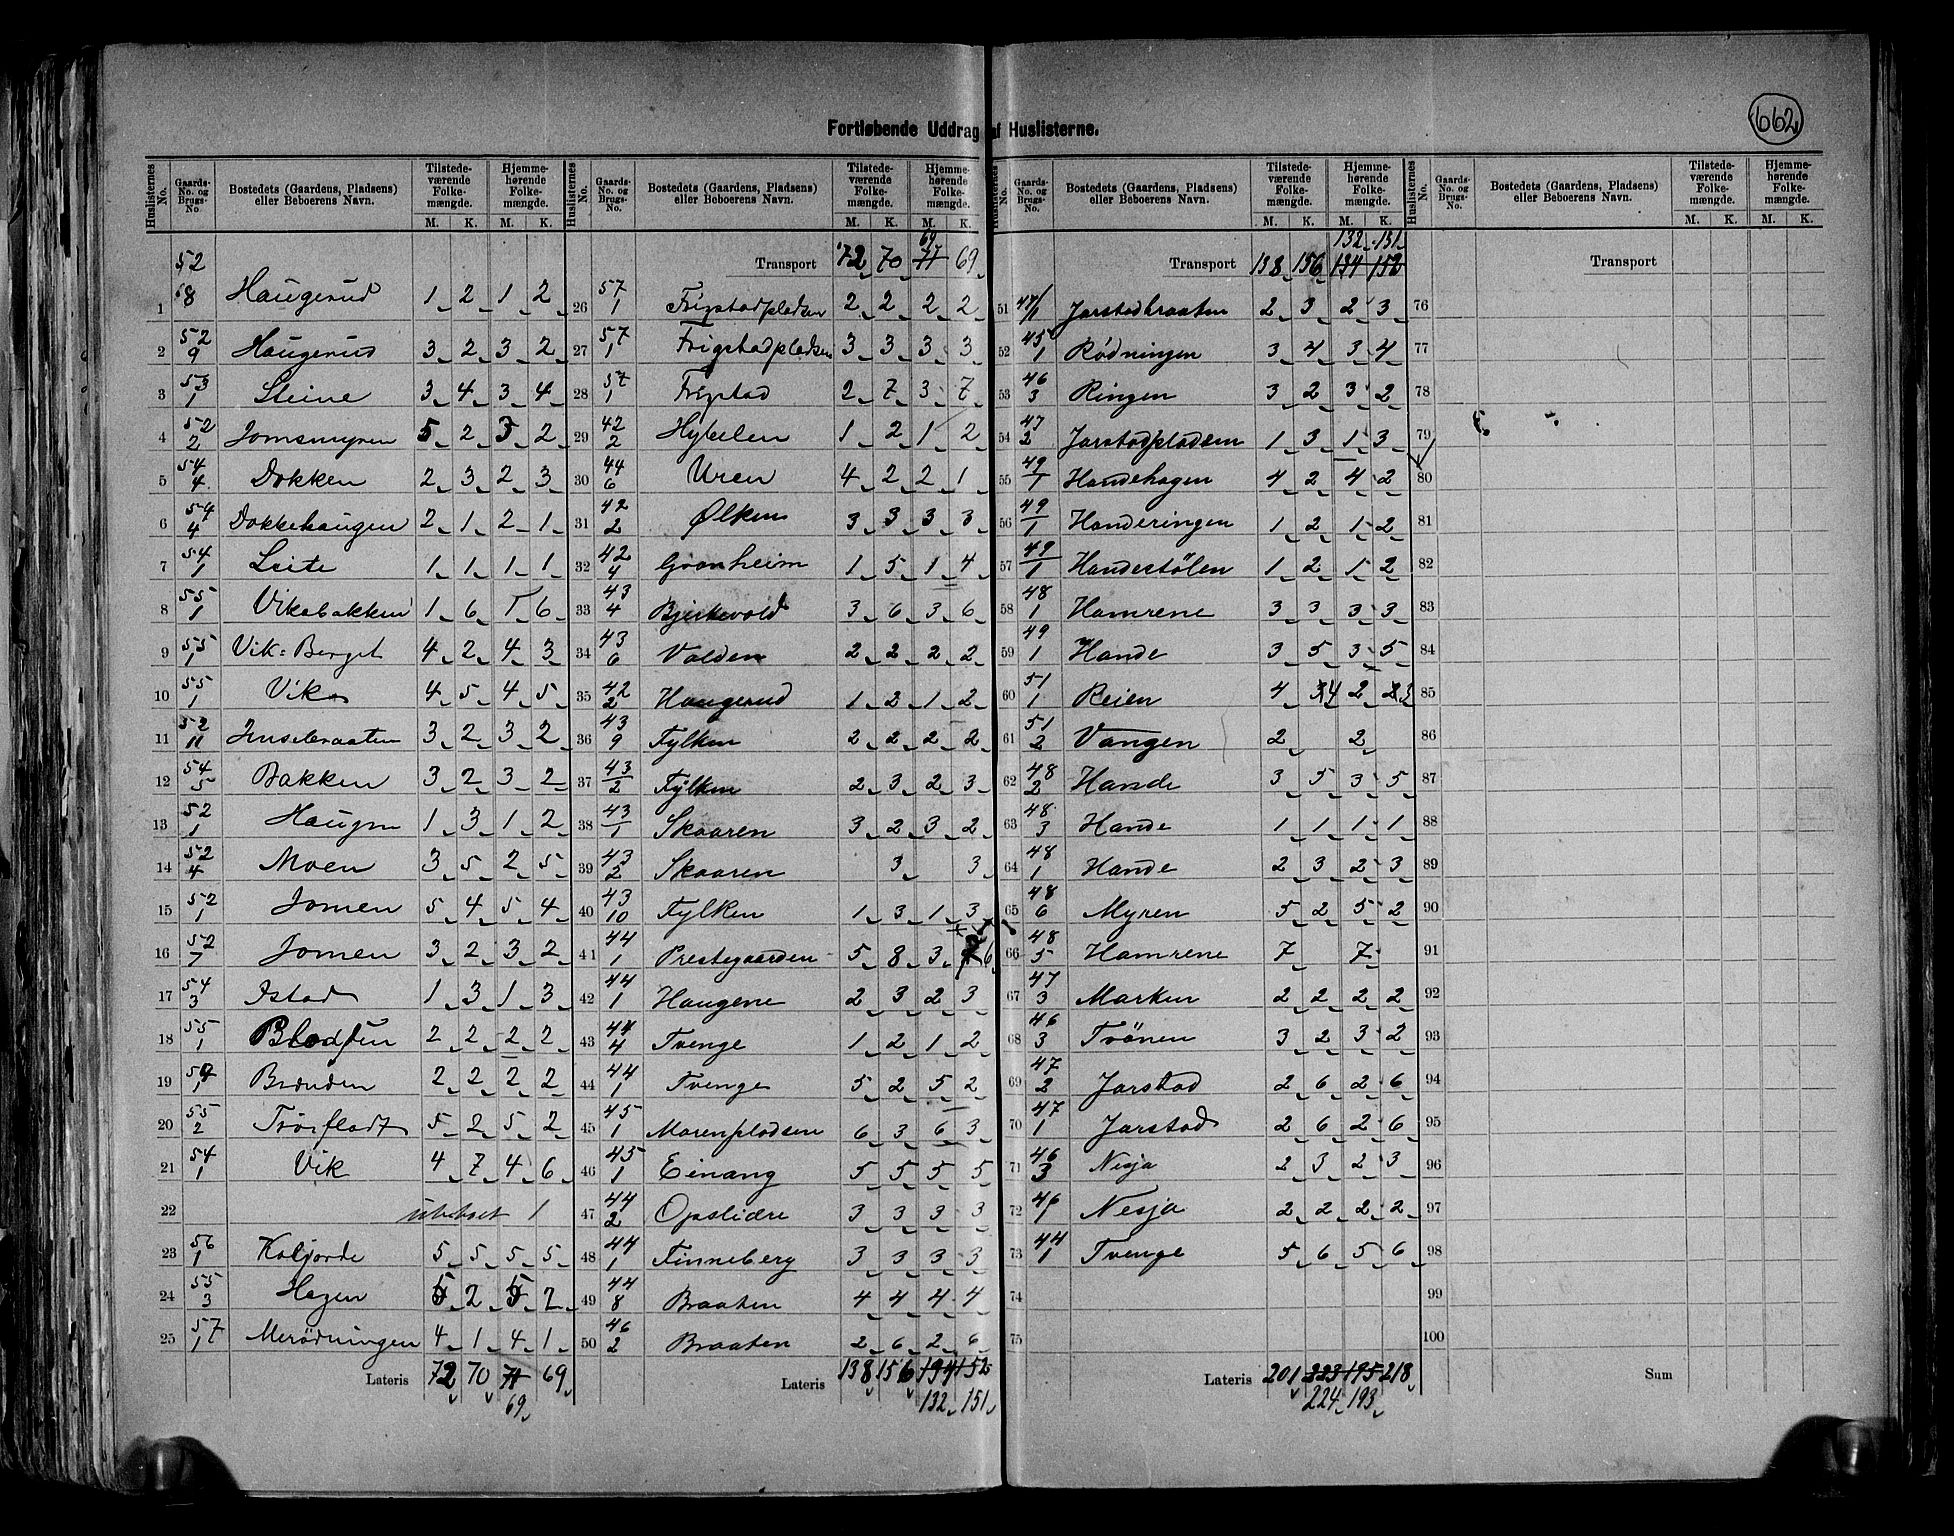 662
Fortløbende Uddrag af Huslisterne.
Huslisternes No. Gaards-No. og Brugs-No. Bostedets (Gaardens, Pladsens) eller Beboerens Navn. Tilstedeværende Folkemængde. M. K. Hjemmehørende Folkemængde. M. K.
1 52/8 Haugerud 1 2 1 2
2 52/9 Haugerud 3 2 3 2
3 53/1 Steine 3 4 3 4
4 52/2 Jomsmyren 5 2 5 2
5 54/4 Dokken 2 3 2 3
6 54/4 Dokkehaugen 2 1 2 1
7 54/1 Leite 1 1 1 1
8 55/1 Vikabakken 1 6 1 6
9 55/1 Vik: Berget 4 2 4 3
10 55/1 Vik 4 5 4 5
11 52/11 3 2 3 2
12 54/5 Bakken 3 2 3 2
13 52/1 Haugen 1 3 1 2
14 52/4 Moen 3 5 2 5
15 52/1 Jomen 5 4 5 4
16 52/7 Jomen 3 2 3 2
17 54/3 Istad 1 3 1 3
18 55/1 2 2 2 2
19 Brænden 2 2 2 2
20 55/2 5 2 5 2
21 54/1 Vik 4 7 4 6
22 ubeboet 1
23 56/1 Kolfjorde 5 5 5 5
24 55/3 Hagen 5 2 5 2
25 57/1 Merödningen 4 1 4 1
Lateris 72 70 71 69
69
Huslisternes No. Gaards-No. og Brugs-No. Bostedets (Gaardens, Pladsens) eller Beboerens Navn. Tilstedeværende Folkemængde. M. K. Hjemmehørende Folkemængde. M. K.
69
Transport 72 70 71 69
26 57/1 Frigstadpladsen 2 2 2 2
27 57/1 Frigstadpladsen 3 3 3 3
28 57/1 Frigstad 2 7 3 7
29 42/2 Hybelen 1 2 1 2
30 44/6 Uren 4 2 2 1
31 42/2 Ølken 3 3 3 3
32 42/4 Grønheim 1 5 1 4
33 43/4 Bjerkevold 3 6 3 6
34 43/6 Volden 2 2 2 2
35 42/2 Haugerud 1 2 1 2
36 43/9 Fylken 2 2 2 2
37 43/2 Fylken 2 3 2 3
38 43/1 Skaaren 3 2 3 2
39 43/2 Skaaren 3 3
40 43/10 Fylken 1 3 1 3
41 44/1 Prestegaarden 5 8 3 6
42 44/1 Haugene 2 3 2 3
43 44/4 Tvenge 1 2 1 2
44 44/1 Tvenge 5 2 5 2
45 45/1 Marenpladsen 6 3 6 3
46 45/1 Einang 5 5 5 5
47 44/2 Opslidre 3 3 3 3
48 44/1 Finneberg 3 3 3 3
49 44/8 Braaten 4 4 4 4
50 46/2 Braaten 2 6 2 6
Lateris 138 156 134 152
132 151
Huslisternes No. Gaards-No. og Brugs-No. Bostedets (Gaardens, Pladsens) eller Beboerens Navn. Tilstedeværende Folkemængde. M. K. Hjemmehørende Folkemængde. M. K.
132 151
Transport 138 156 134 152
51 47/1 Jarstadbraaten 2 3 2 3
52 45/1 Rødningen 3 4 3 4
53 46/3 Ringen 3 2 3 2
54 47/2 Jarstadpladsen 1 3 1 3
55 49/1 Handehagen 4 2 4 2
56 49/1 Handeringen 1 2 1 2
57 49/1 Handestölen 1 2 1 2
58 48/1 Hamrene 3 3 3 3
59 49/1 Hande 3 5 3 5
60 51/1 Reien 4 4 2 3
61 51/2 Vangen 2 2
62 48/2 Hande 3 5 3 5
63 48/3 Hande 1 1 1 1
64 48/1 Hande 2 3 2 3
65 48/6 Myren 5 2 5 2
66 48/5 Hamrene 7 7
67 47/3 Marken 2 2 2 2
68 46/3 Trönen 3 2 3 2
69 47/2 Jarstad 2 6 2 6
70 47/1 Jarstad 2 6 2 6
71 46/3 Nesja 2 3 2 3
72 46/1 Nesja 2 2 2 2
73 44/1 Tvenge 5 6 5 6
74
75
Lateris 201 223 195 218
224 193
Huslisternes No. Gaards-No. og Brugs-No. Bostedets (Gaardens, Pladsens) eller Beboerens Navn. Tilstedeværende Folkemængde. M. K. Hjemmehørende Folkemængde. M. K.
Transport
76
77
78
79
80
81
82
83
84
85
86
87
88
89
90
91
92
93
94
95
96
97
98
99
100
Sum